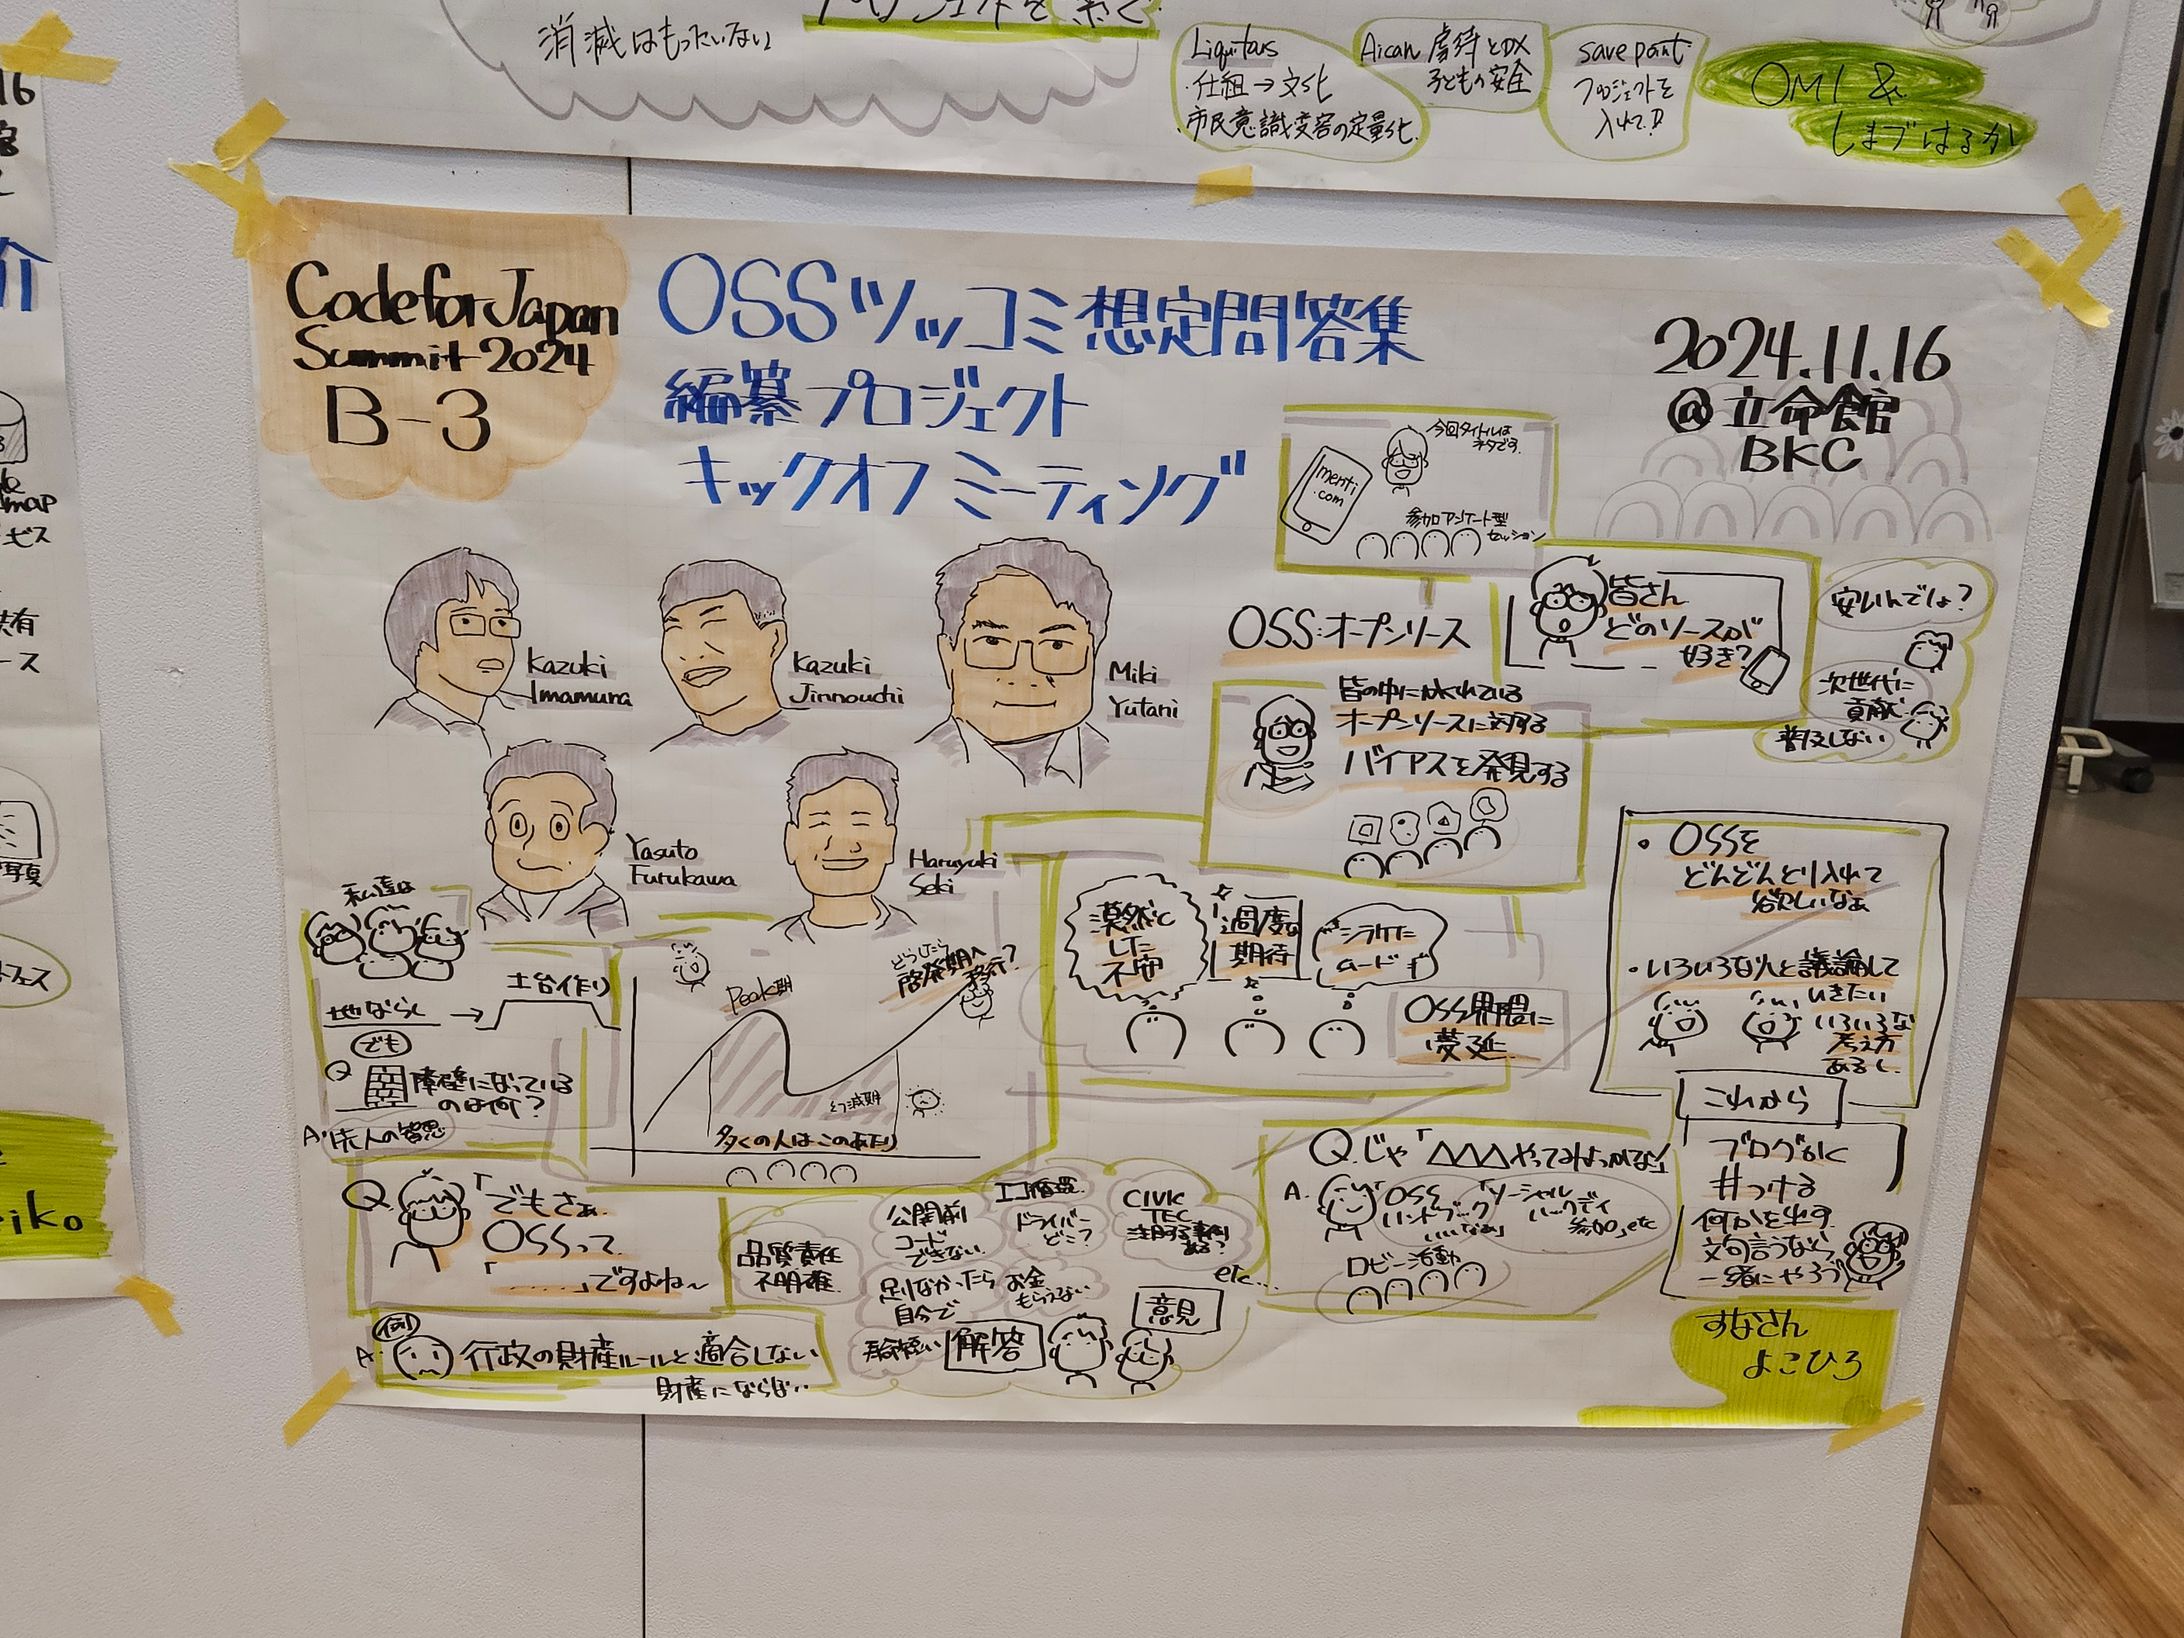 消滅はもったいない
Liquitous
・仕組→文化
・市民意識変容の定量化
Aican 虐待とDX
子どもの安全
save point
プロジェクトを
OMI &
しまづはるか
Code for Japan
Summit 2024
B-3
OSSツッコミ想定問答集
編纂プロジェクト
キックオフミーティング
2024.11.16
@立命館
BKC
今回タイトルは
ネタです。
menti
.com
参加アンケート型
セッション
Kazuki
Imamura
Kazuki
Jinnouchi
Miki
Yutani
Yasuto
Furukawa
Haruyuki
Seki
OSS:オープンソース
皆さん
どのソースが
好き?
安いんでしょ?
次世代に
貢献
普及しない
皆の中にかくれている
オープンソースに対する
バイアスを発見する
漠然と
した
不安
過度な
期待
シラケた
ムード
OSS界隈に
蔓延
・OSSを
どんどんとり入れて
欲しいなぁ
・いろいろな人と議論して
いきたい
いろいろな
考え方
あるし
これから
ブログ
#つける
何かを出す
文句言うなら
一緒にやろう
私達は
地ならし → 土台作り
でも
Q 障壁になっている
のは何?
A. 先人の智恵
Peak期
どうしたら
啓発期へ
移行?
幻滅期
多くの人はこのあたり
Q 「でもさぁ
OSSって
「……」ですよね〜
例
A. 行政の財産ルールと適合しない
財産にならない
品質責任
不明確
公開前
コード
できない
足りなかったら
自分で
ドライバー
どこ?
お金
もらえない
CIVIC
TEC
etc...
解答
意見
Q.じゃ「△△△やってみよっかな」
A. OSS
ハンドブック
「ソーシャル
ハックデイ
参加」etc
ロビー活動
すなさん
よこひろ
eiko